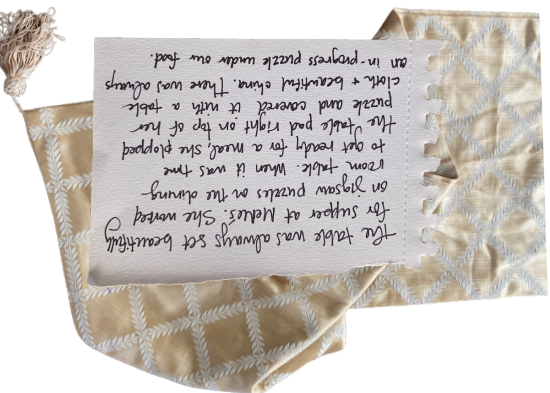 The table was always set beautifully
for supper at Nellie's. She worked
on jigsaw puzzles on the dining-
room table. When it was time
to get ready for a meal, she plopped
the table pad right on top of her
puzzle and covered it with a table
cloth + beautiful china. There was always
an in-progress puzzle under our food.